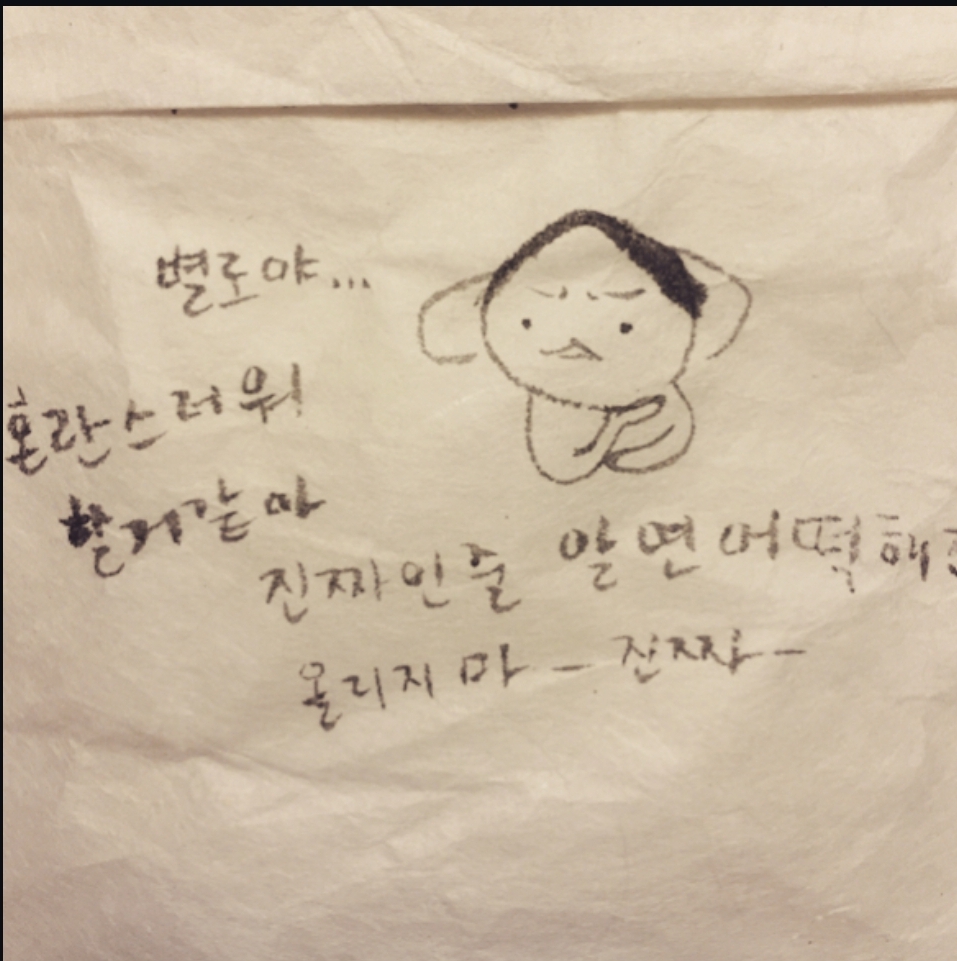 별로야...
혼란스러워
할거같아
진짜인줄 알면 어떡해
올리지 마 - 진짜 -